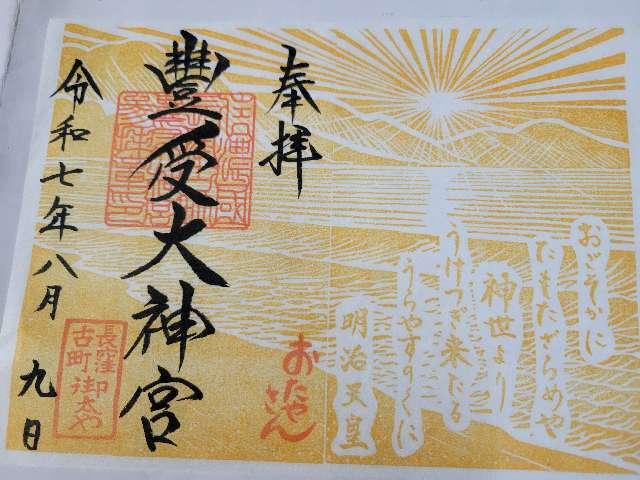 おごそかに
たもたざらめや
神世より
うけつぎ来たる
うらやすのくに
明治天皇
奉拝
おたや
さん
豐受大神宮
令和七年八月九日
長窪
古町
御太や